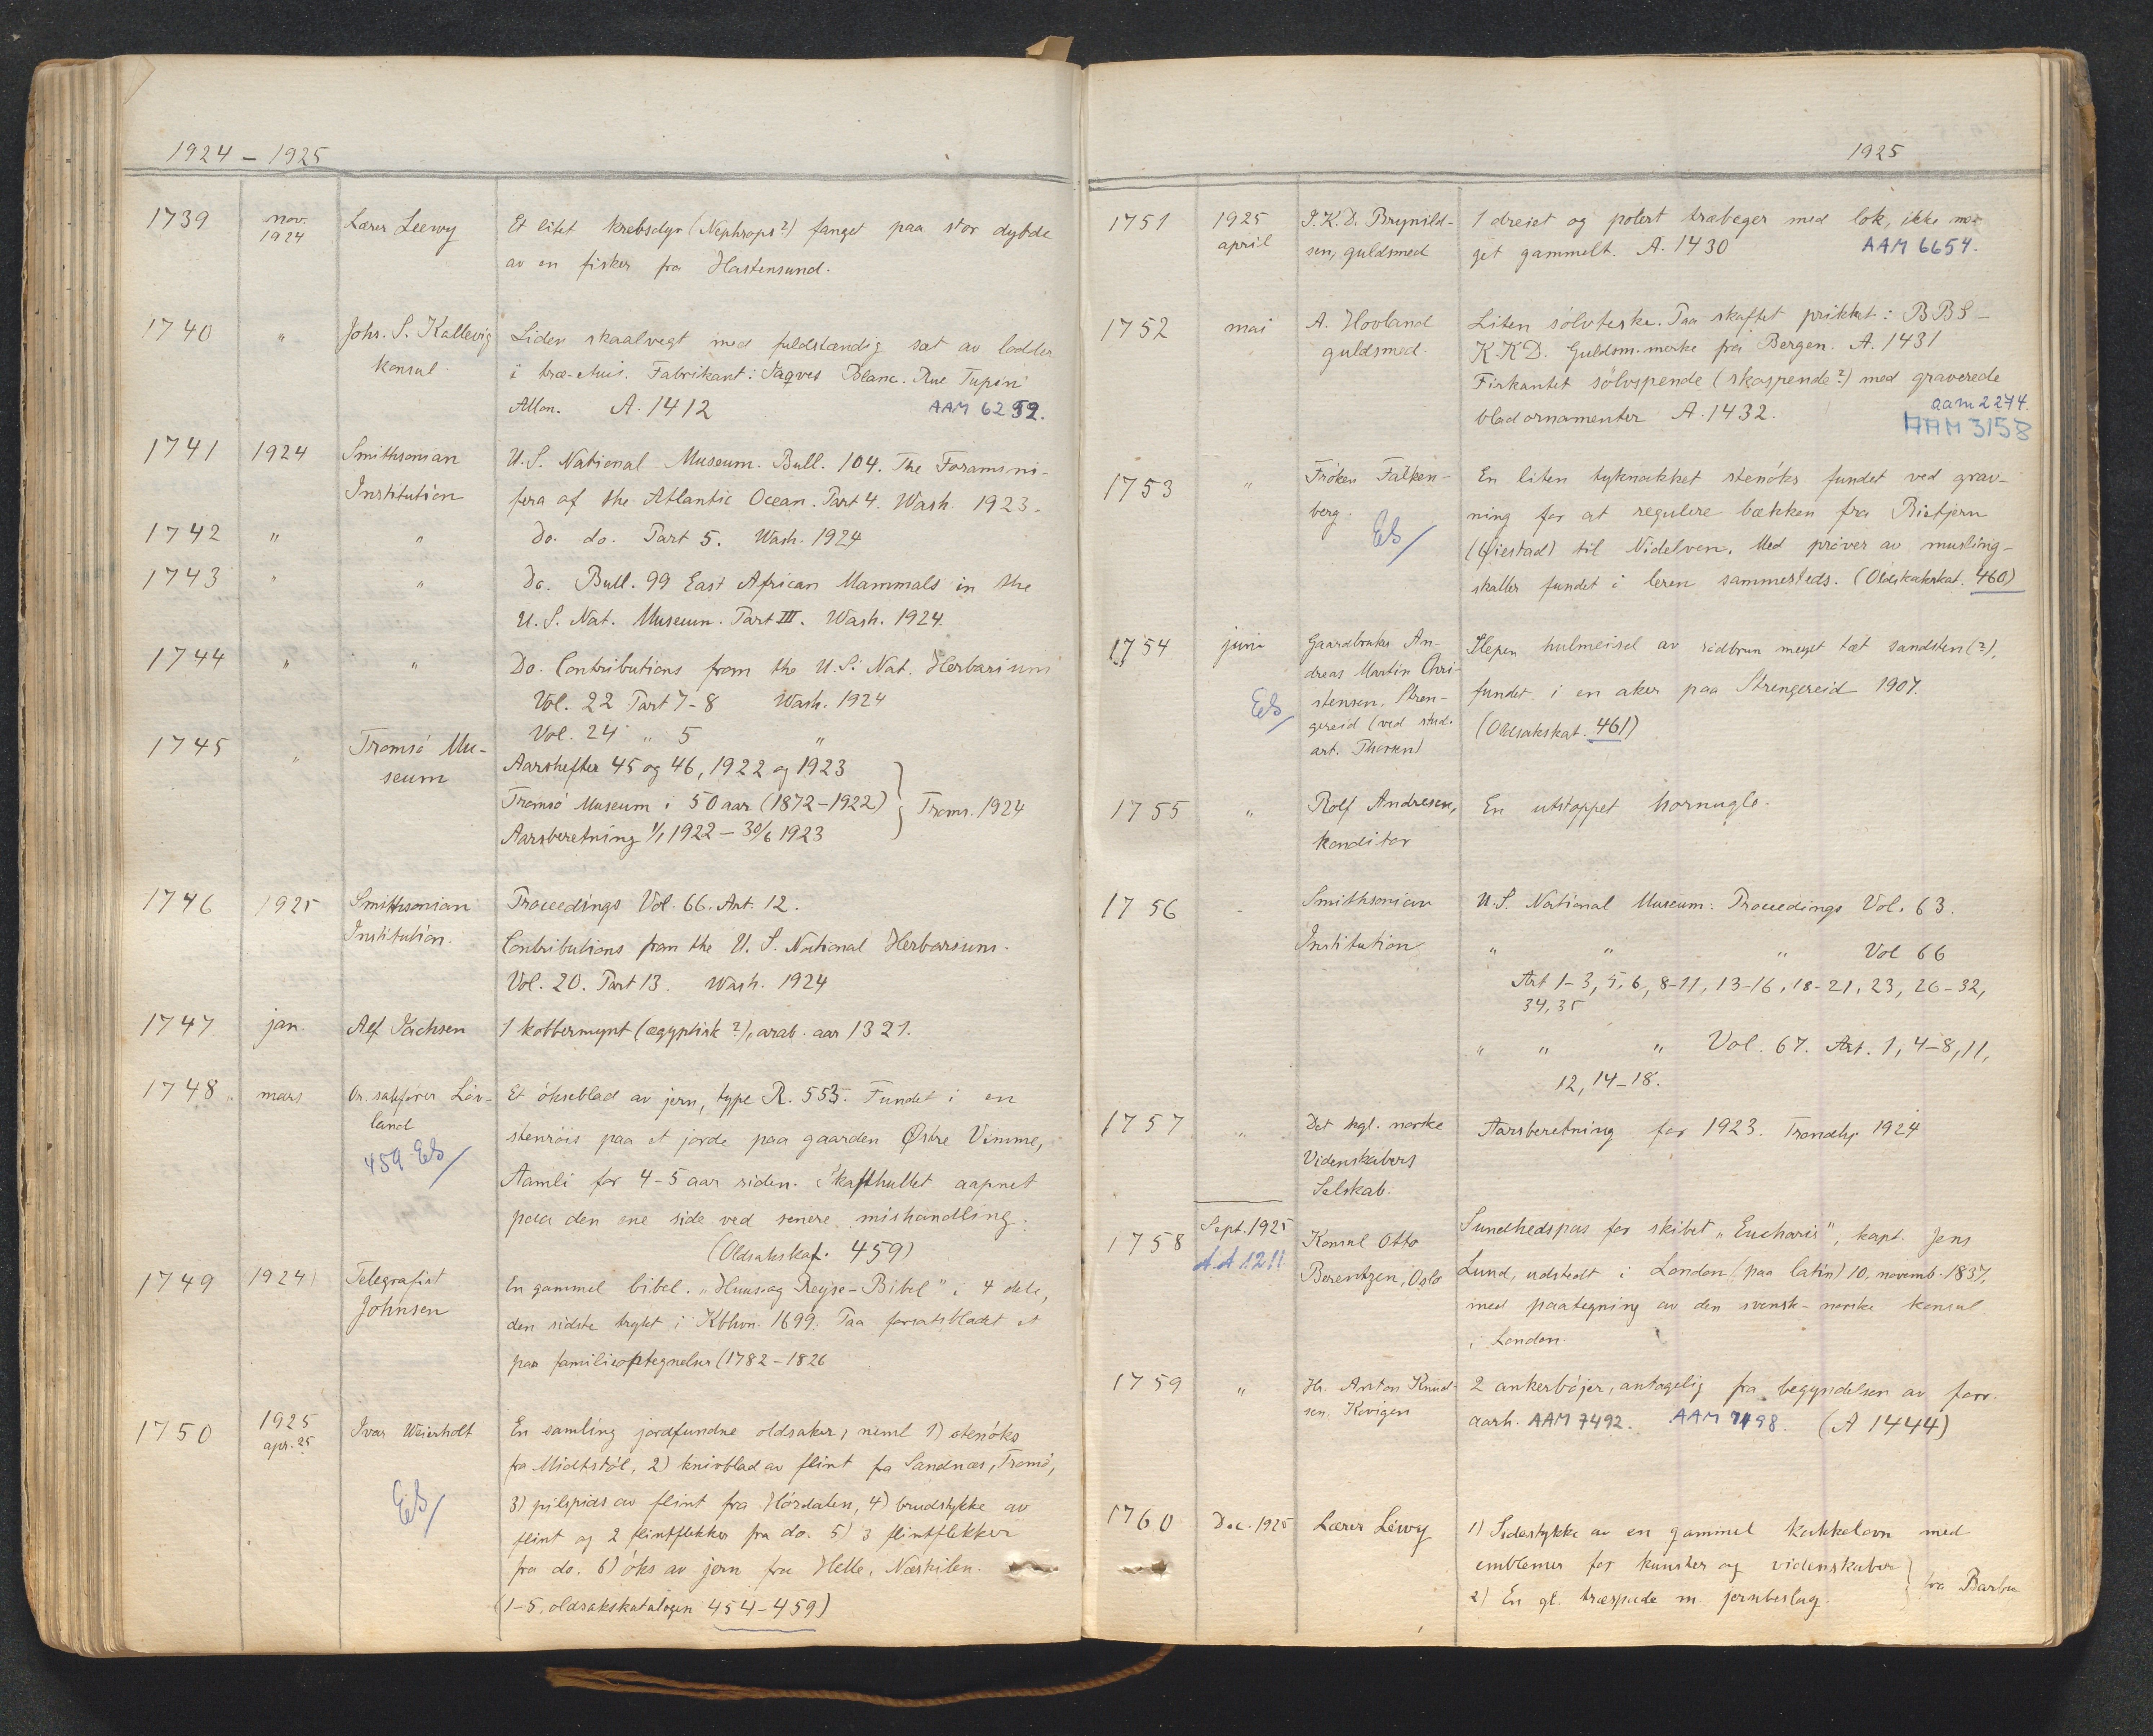 1924 - 1925
1739 nov. 1924 Lærer Leewy Et litet krebsdyr (Nephrops?) fanget paa stor dybde
av en fisker fra Hastensund.
1740 " Johs. S. Kallevig Liden skaalvegt med fuldstændig sæt av lodder
konsul. i træ-etuis. Fabrikant: Jaques Blanc. Rue Tupin
A. 1412 AAM 6252.
1741 1924 Smithsonian U.S. National Museum. Bull. 104. The Foramini-
Institution fera of the Atlantic Ocean. Part 4. Wash. 1923.
1742 " " Do. do. Part 5. Wash. 1924
1743 " " Do. Bull. 99 East African Mammals in the
U.S. Nat. Museum. Part III. Wash. 1924.
1744 " " Do. Contributions from the U.S. Nat. Herbarium
Vol. 22 Part 7-8 Wash. 1924
Vol. 24 " 5 "
1745 " Tromsø Mu- Aarshefter 45 og 46, 1922 og 1923
seum Tromsø Museum i 50 aar (1872-1922) } Troms. 1924
Aarsberetning 1/1 1922 - 30/6 1923
1746 1925 Smithsonian Proceedings Vol. 66. Art. 12.
Institution. Contributions from the U.S. National Herbarium.
Vol. 20. Part 13. Wash. 1924
1747 jan. Alf Isachsen 1 kobbermynt (ægyptisk?), arab. aar 1321.
1748. mars Or. sakfører Løv- Et økseblad av jern, type R. 553. Fundet i en
land stenrøis paa et jorde paa gaarden Østre Vimme,
459 EB/ Aamli for 4-5 aar siden. Skafthullet aapnet
paa den ene side ved senere mishandling.
(Oldsakskat. 459)
1749 1924 Telegrafist En gammel bibel. "Huus og Reyse-Bibel" i 4 dele,
Johnsen den sidste trykt i Kbhvn. 1699. Paa forsatsbladet et
par familieoptegnelser (1782-1826
1750 1925 apr. 25 Ivar Weierholt En samling jordfundne oldsaker, neml 1) stenøks
fra Midtstøl, 2) knivblad av flint fra Sandnes, Tromø,
EB/ 3) pilspids av flint fra Hørdalen, 4) brudstykke av
flint og 2 flintflekker fra do. 5) 3 flintflekker
fra do. 6) øks av jern fra Helle, Næskilen.
(1-5, oldsakskatalogen 454-459)
1925
1751 1925 april J.K.D. Brynild- 1 dreiet og polert træbeger med lok, ikke me-
sen, guldsmed get gammelt. A. 1430 AAM 6654.
1752 mai A. Hovland Liten sølvteske. Paa skaftet prikket: BBS-
guldsmed. K.K.D. Guldsm.merke fra Bergen. A. 1431
Firkantet sølvspende (skospende?) med graverede
bladornamenter A. 1432. aam 2274.
AAM 3158
1753 " Frøken Falken- En liten tyknakket stenøks fundet ved grav-
berg. ning for at regulere bækken fra Bietjern
EB/ (Øiestad) til Nidelven. Med prøver av musling-
skaller fundet i leren sammesteds. (Oldsakskat. 460)
1754 juni Gaardbruker An- Slepen hulmeisel av rødbrun meget tæt sandsten (?),
dreas Martin Chri-
EB/ stensen, Stren- fundet i en aker paa Strengereid 1907.
gereid (ved stud. (Oldsakskat. 461)
art. Thorsen)
1755 " Rolf Andresen, En utstoppet hornugle.
konditor
1756 - Smithsonian U.S. National Museum: Proceedings Vol. 63.
Institution " " " Vol 66
Art 1-3, 5, 6, 8-11, 13-16, 18-21, 23, 26-32,
34, 35
" " " Vol. 67. Art. 1, 4-8, 11,
12, 14-18.
1757 " Det kgl. norske Aarsberetning for 1923. Trondhj. 1924
Videnskabers
Selskab.
1758 Sept. 1925 Konsul Otto Sundhedspas for skibet "Eucharis", kapt. Jens
A.A 1211 Berentzen, Oslo Lund, udstedt i London (paa latin) 10. novemb. 1837,
med paategning av den svensk-norske konsul
i London.
1759 " Hr. Anton Knud- 2 ankerbøjer, antagelig fra begyndelsen av forr.
sen, Kovigen aarh. AAM 7492. AAM 7498. (A 1444)
1760 Dec. 1925 Lærer Léwy 1) Sidestykke av en gammel kakkelovn med
emblemer for kunster og videnskaber } fra Barbu
2) En gl. træspade m. jernbeslag.